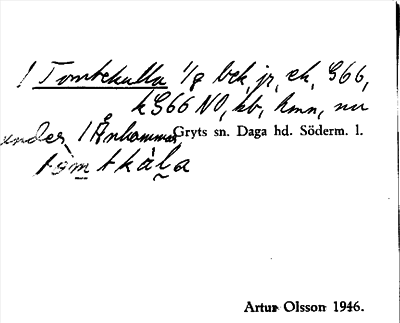 1 Tomtekulla 1/8 bck, jr, ek, G66,
kG66 NO, kb, hmn, nu
under 1 Ånhammar, Gryts sn. Daga hd. Söderm. l.
Artur Olsson 1946.